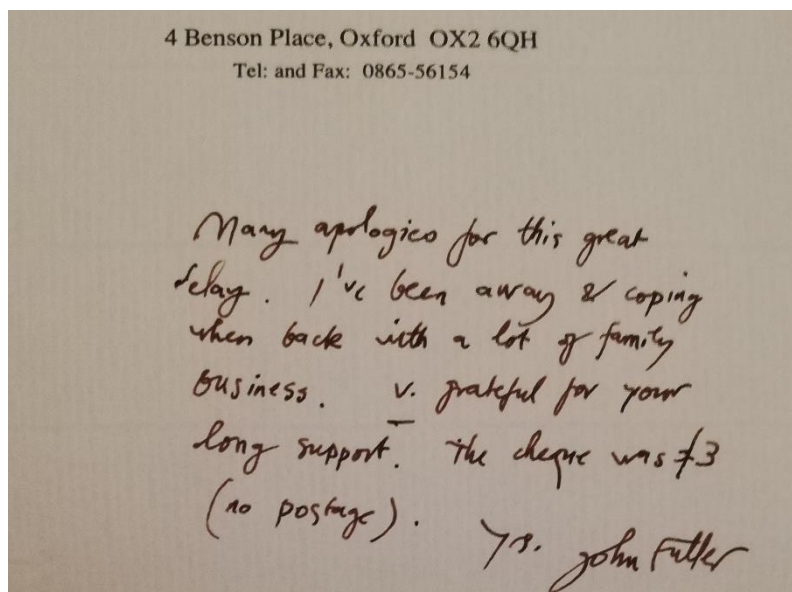 4 Benson Place, Oxford OX2 6QH
Tel: and Fax: 0865-56154
Many apologies for this great
delay. I've been away & coping
when back with a lot of family
business. v. grateful for your
long support. The cheque was £3
(no postage).
Yrs. John Fuller